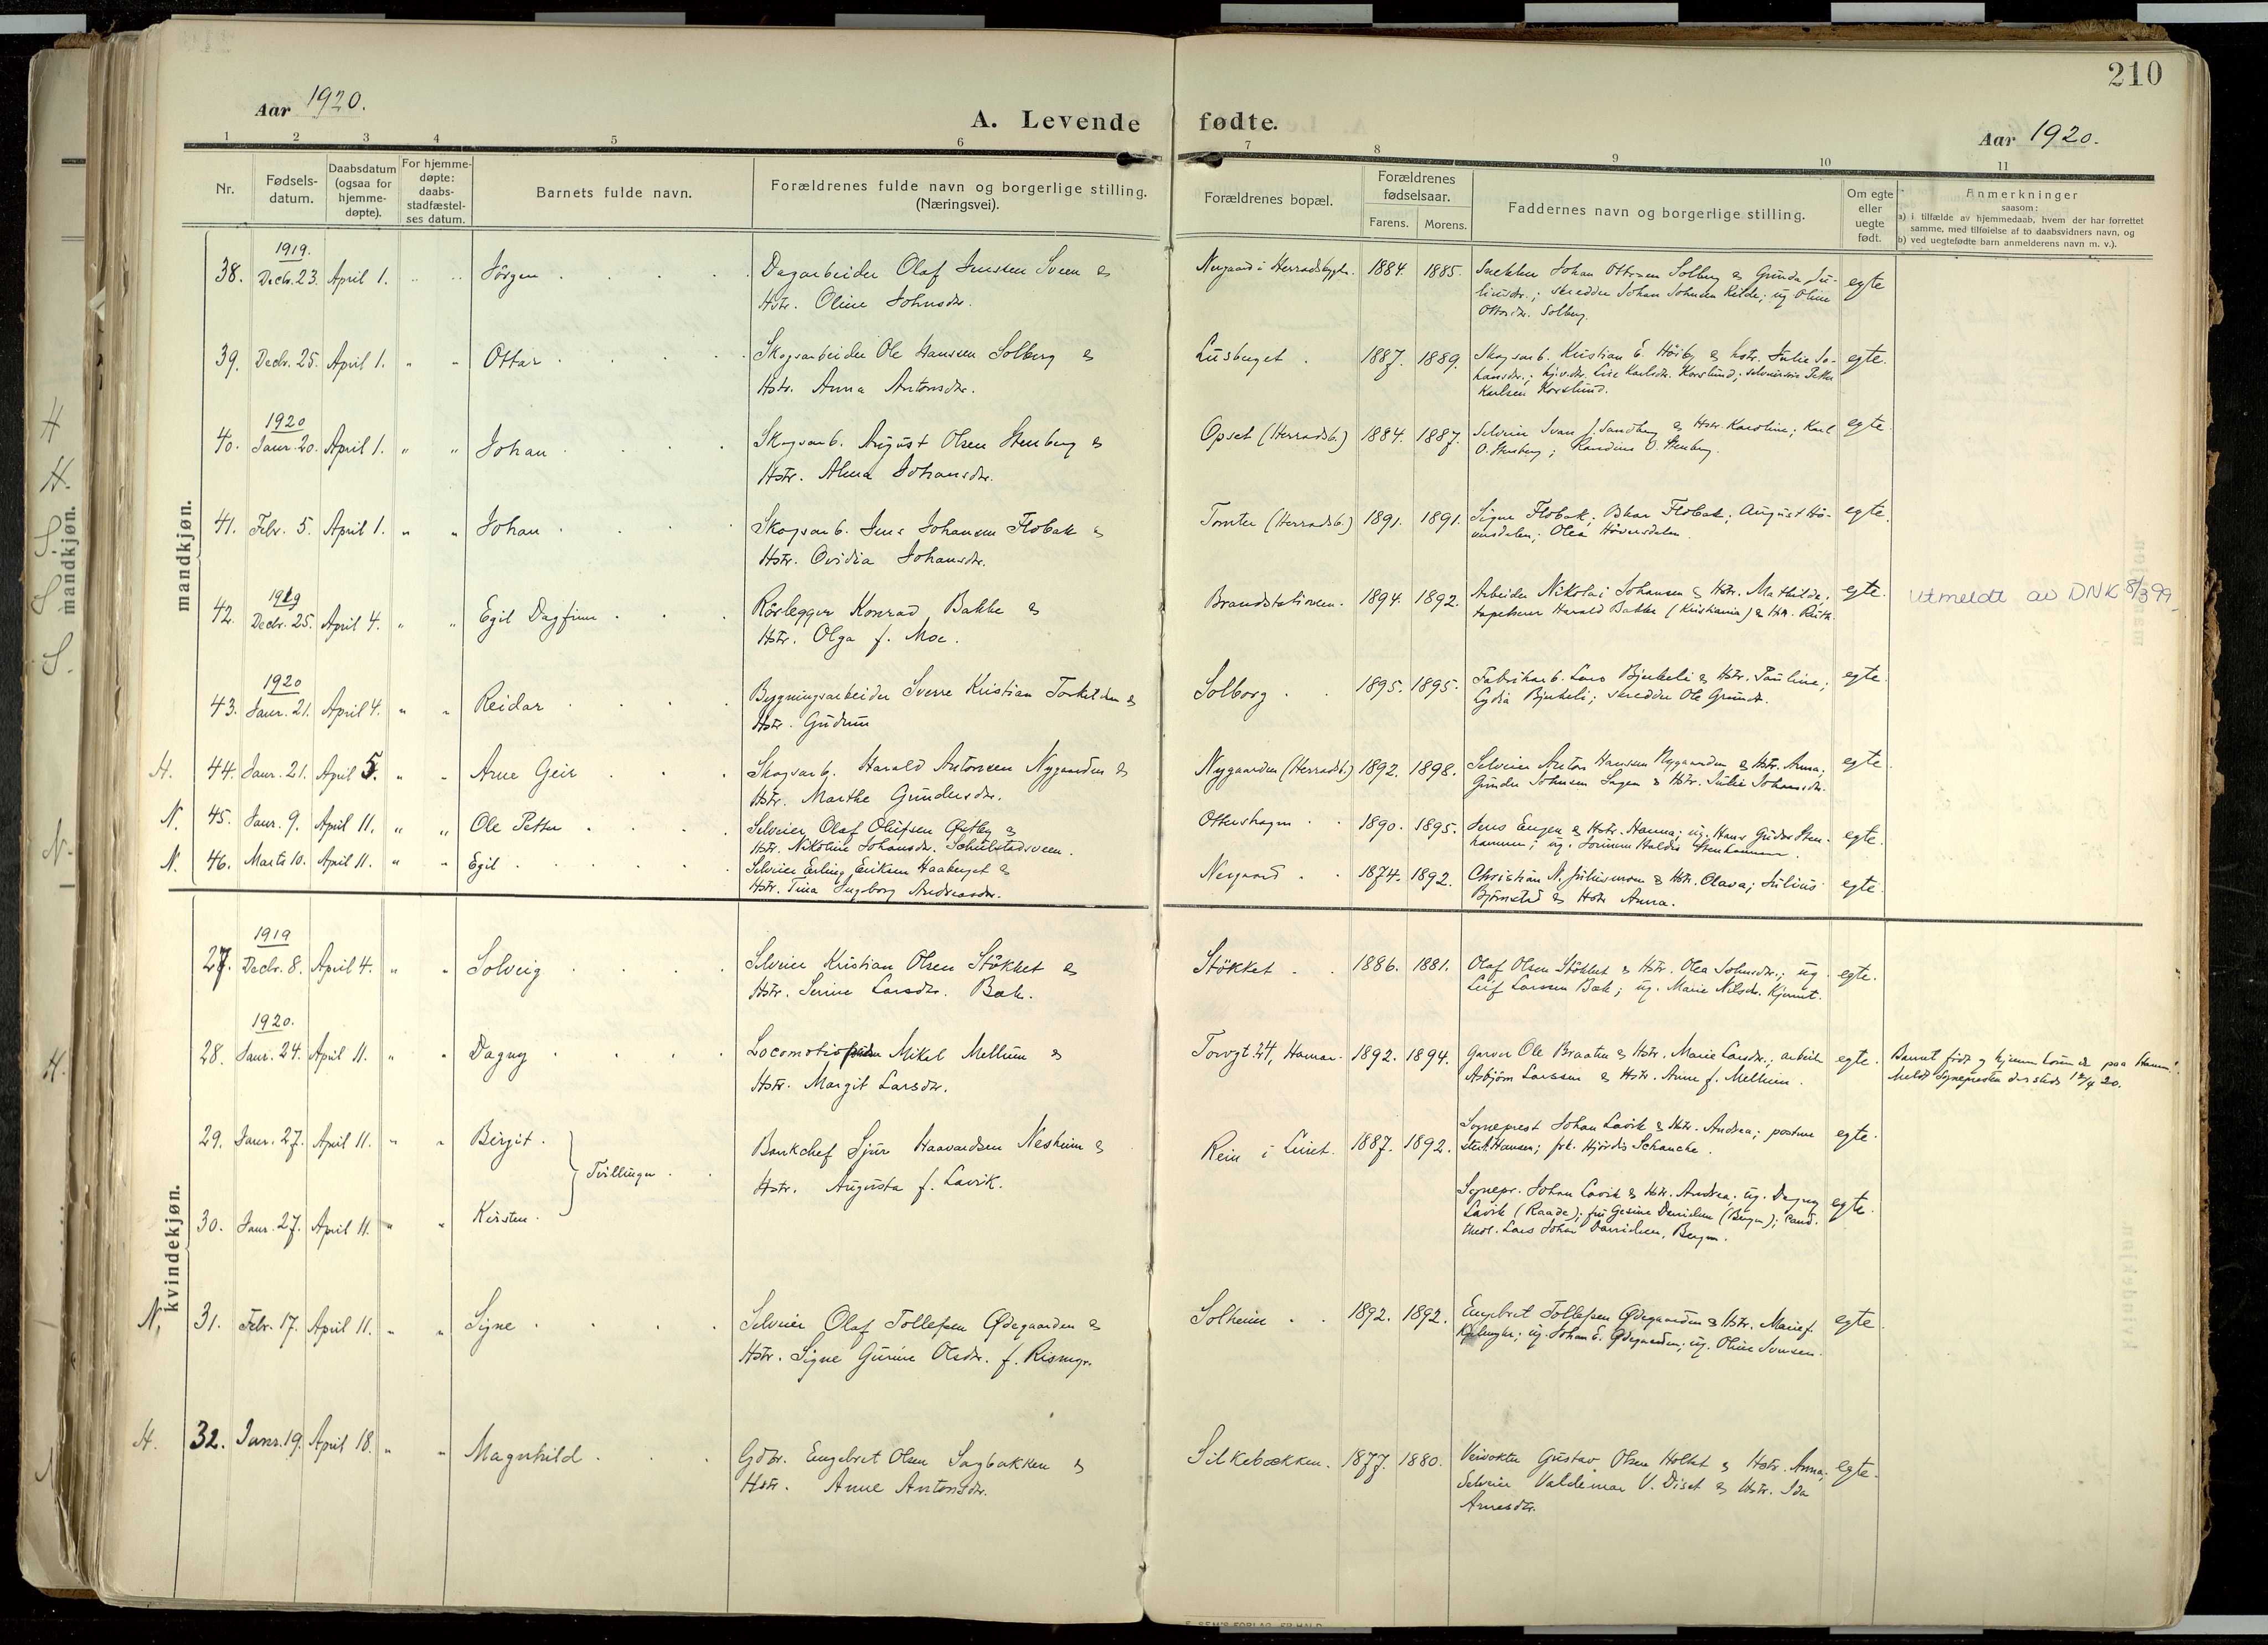 210
Aar 1920.
A. Levende fødte.
Aar 1920.
1 2 3 4 5 6 7 8 9 10 11
Nr.
Fødsels-
datum.
Daabsdatum
(ogsaa for
hjemme-
døpte).
For hjemme-
døpte:
daabs-
stadfæstel-
ses datum.
Barnets fulde navn.
Forældrenes fulde navn og borgerlige stilling.
(Næringsvei).
Forældrenes bopæl.
Forældrenes
fødselsaar.
Farens. Morens.
Faddernes navn og borgerlige stilling.
Om egte
eller
uegte
født.
Anmerkninger
saasom:
a) i tilfælde av hjemmedaab, hvem der har forrettet
samme, med tilføielse af to daabsvidners navn, og
b) ved uegtefødte barn anmelderens navn m. v.).
mandkjøn.
1919.
38. Decbr. 23. April 1. Jörgen Dagarbeider Olaf Jensen Sveen & 1884. 1885. Snekker Johan Ottosen Solberg & Gunda Ju-
Hstr. Oline Johnsdr. liusdr.; skredder Johan Johnsen Kilde; ug Oline
Ottosdr. Solberg. egte
39. Decbr. 25. April 1. " " Ottar Skogsarbeider Ole Hansen Solberg & Lusberget 1887. 1889. Skogsarb. Kristian E. Höiby & hstr. Julie Jo- egte.
Hstr. Anna Antonsdr. hansdr.; Lise Karlsdr. Korslund; Petter
Karlsen Korslund.
1920
40. Januar. 20. April 1. " " Johan Skogsarb. August Olsen Stenberg & Opset (Herradsb.) 1884. 1887. Selveier Ivan J. Sandberg & Hstr. Karoline; Karl egte.
Hstr. Alma Johansdr. O. Stenberg; O. Stenberg.
41. Febr. 5. April 1. " " Johan Skogsarb. Jens Johansen Flobak & Tomter (Herradsb.) 1891. 1891. Signe Flobak; Flobak; August Hö- egte.
Hstr. Ovidia Johansdr. versdalen; Olea Höversdalen.
1919
42. Decbr. 25. April 4. " " Egil Dagfinn Rörlegger Konrad Bakke & Brandstationen. 1894. 1892. Arbeider Nikolai Johansen & Hstr. Mathilde; egte. utmeldt av DNK 8/3 99
Hstr. Olga f. Moe. tapetserer Harald Bakke (Kristiania) & Hstr. Ruth.
1920
43. Januar. 21. April 4. " " Reidar Bygningsarbeider Sverre Kristian Torkildsen & Solborg 1895. 1895. Fabrikarb. Lars Bjerkeli & Hstr. Pauline; egte.
Hstr. Gudrun Lydia Bjerkeli; skredder Ole Grundt.
H. 44. Januar. 21. April 5. " " Arne Geir Skogsarb. Harald Antonsen Nygaarden & Nygaarden (Herradsb.) 1892. 1898. Selveier Anton Hansen Nygaarden & Hstr. Anna; egte
Hstr. Marthe Gundersdr. Gunder Johnsen Sagen & Hstr. Julie Johansdr.
N. 45. Januar. 9. April 11. " " Ole Petter Selveier Olaf Olufsen Østby & Ottershagen 1890. 1895. Jens Engen & Hstr. Hanna; ug. Hans Sten- egte.
Hstr. Nikoline Johansdr. Schulstadsveen. hammer; ug. Haldis Stenhammer.
N. 46. Marts 10. April 11. " " Egil Selveier Erling Eriksen Haaberget & Nergaard 1874. 1892. Christian N. & Hstr. Olava; Julius egte.
Hstr. Tina Ingborg Andreasdr. Björnstad & Hstr Anna.
kvindekjøn.
1919
27. Decbr. 8. April 4. " " Solveig Selveier Kristian Olsen Stökket & Stökket 1886. 1881. Olaf Olsen Stökket & Hstr. Olea Johnsdr.; ug. egte.
Hstr. Serine Larsdr. Bæk. Leif Larsen Bæk; ug. Marie Nilsdr. Kjernet.
1920.
28. Januar. 24. April 11. " " Dagny Mikal Mellum & Torvgt. 24, Hamar. 1892. 1894. Garver Ole Braaten & Hstr. Marie Larsdr.; arbeider egte. Barnet født og hjemmehörende paa Hamar.
Hstr. Margit Larsdr. Asbjörn Larssen & Hstr. Anne f. Mellum. Meldt Sognepresten dersteds 12/4 20.
29. Januar. 27. April 11. " " Birgit. Bankchef Sjur Haavardsen Nesheim & Rein i Lunet. 1887. 1892. Sogneprest Johan Lavik & Hstr. Andrea; egte.
Hstr. Augusta f. Lavik. Hansen; frk. Hjördis Schanche.
Tvillinger
30. Januar. 27. April 11. " " Kirsten. Sognepr. Johan Lavik & Hstr. Andrea; ug. Dagny egte.
Lavik (Raade); fru Gesine Davidsen (Bergen); cand.
theol. Lars Johan Davidsen, Bergen.
N. 31. Febr. 17. April 11. " " Signe Selveier Olaf Tollefsen Ødegaarden & Solheim 1892. 1892. Engebret Tollefsen Ødegaarden & Hstr. Marie f. egte.
Hstr. Signe Gurine Olsdr. f. ug. Johan E. Ødegaarden; ug. Oline
H. 32. Januar. 19. April 18. " " Magnhild Gdbr. Engebret Olsen Sagbakken & Silkebækken. 1877. 1880. Veivokter Gustav Olsen Holtet & Hstr. Anna; egte.
Hstr. Anne Antonsdr. Selveier Valdemar V. Diset & Hstr. Ida
Arnesdr.
H
H.
S
S
S.
N.
H.
mandkjøn.